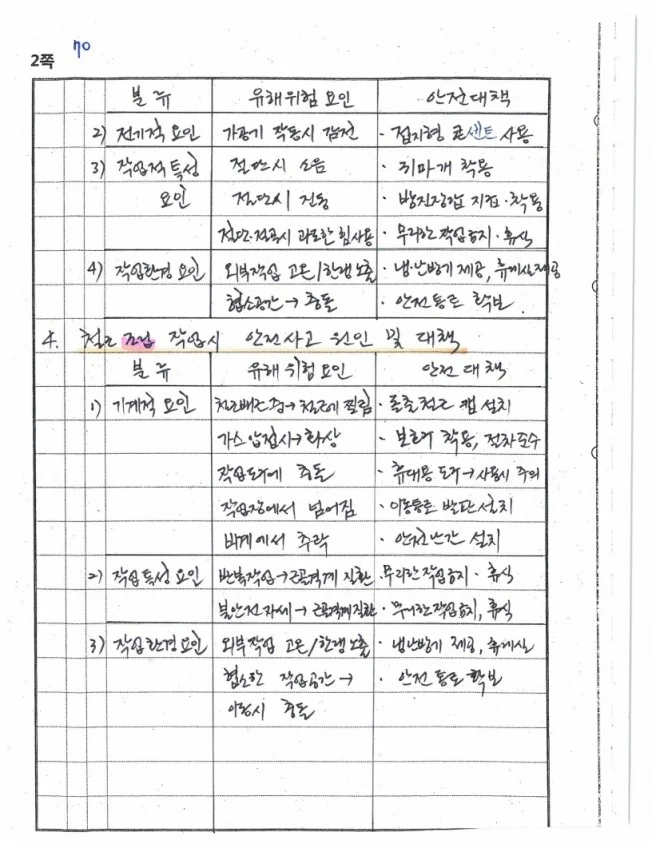 70
2쪽
분류 유해위험요인 안전대책
2) 전기적 요인 가공기 작동시 감전 · 접지형 콘센트 사용
3) 작업적 특성 절단시 소음 · 귀마개 착용
요인 절단시 진동 · 방진장갑 지급·착용
절단·절곡시 과도한 힘사용 · 무리한 작업금지·휴식
4) 작업환경 요인 외부작업 고온/한랭 노출 · 냉·난방기 제공, 휴게실제공
협소공간→충돌 · 안전통로 확보
4. 철근 조립 작업시 안전사고 원인 및 대책
분류 유해위험요인 안전대책
1) 기계적 요인 철근배근 중→철근에 찔림 · 돌출철근 캡 설치
가스압접시→화상 · 보호구 착용, 절차준수
작업도구에 충돌 · 휴대용 도구→사용시 주의
작업장에서 넘어짐 · 이동통로 발판 설치
비계에서 추락 · 안전난간 설치
2) 작업특성 요인 반복작업→근골격계 질환 · 무리한작업금지·휴식
불안전자세→근골격계질환 · 무리한작업금지, 휴식
3) 작업환경요인 외부작업 고온/한랭노출 · 냉난방기 제공, 휴게실
협소한 작업공간→ · 안전통로확보
이동시 충돌